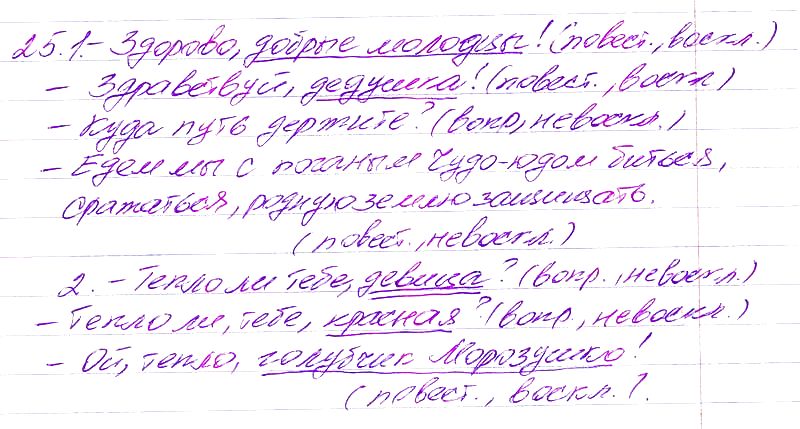 25. 1. - Здорово, добрые молодцы! (повест., воскл.)
- Здравствуй, дедушка! (повест., воскл)
- Куда путь держите? (вопр, невоскл.)
- Едем мы с поганым Чудо-юдом биться,
сражаться, родную землю защищать.
(повест., невоскл.)
2. - Тепло ли тебе, девица? (вопр., невоскл.)
- Тепло ли, тебе, красная? (вопр., невоскл.)
- Ой, тепло, голубчик Морозушко!
(повест., воскл.).